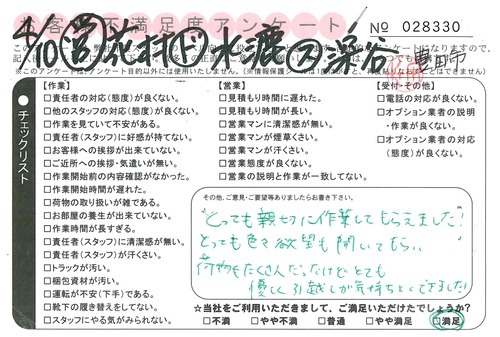 お客様不満足度アンケート
No 028330
4/10 営 花村 F 水瀧 深谷
豊田市
※このアンケートは、アンケート目的以外には使用いたしません。
チェックリスト
【作業】
□責任者の対応(態度)が良くない。
□他のスタッフの対応(態度)が良くない。
□作業を見ていて不安がある。
□責任者(スタッフ)に好感が持てない。
□お客様への挨拶が出来ていない。
□ご近所への挨拶・気遣いが無い。
□作業開始前の内容確認がなかった。
□作業開始時間が遅れた。
□荷物の取り扱いが雑である。
□お部屋の養生が出来ていない。
□作業時間が長すぎる。
□責任者(スタッフ)に清潔感が無い。
□責任者(スタッフ)が汗くさい。
□トラックが汚い。
□梱包資材が汚い。
□運転が不安(下手)である。
□靴下の履き替えをしてない。
□スタッフにやる気がみられない。
【営業】
□見積もり時間に遅れた。
□見積もり時間が長い。
□営業マンに清潔感が無い。
□営業マンが煙草くさい。
□営業マンが汗くさい。
□営業態度が良くない。
□営業の説明と作業が一致してない。
【受付・その他】
□電話の対応が良くない。
□オプション業者の説明
・作業が良くない。
□オプション業者の対応
(態度)が良くない。
その他、ご意見・ご要望等ありましたらお書き下さい。
とっても親切に作業してもらえました!
とっても色々欲望も聞いてもらい、
荷物もたくさんだったけどとても
優しく引越しが気持ちよくできました!
☆当社をご利用いただきまして、ご満足いただけたでしょうか?
□不満 □やや不満 □普通 □やや満足 □満足